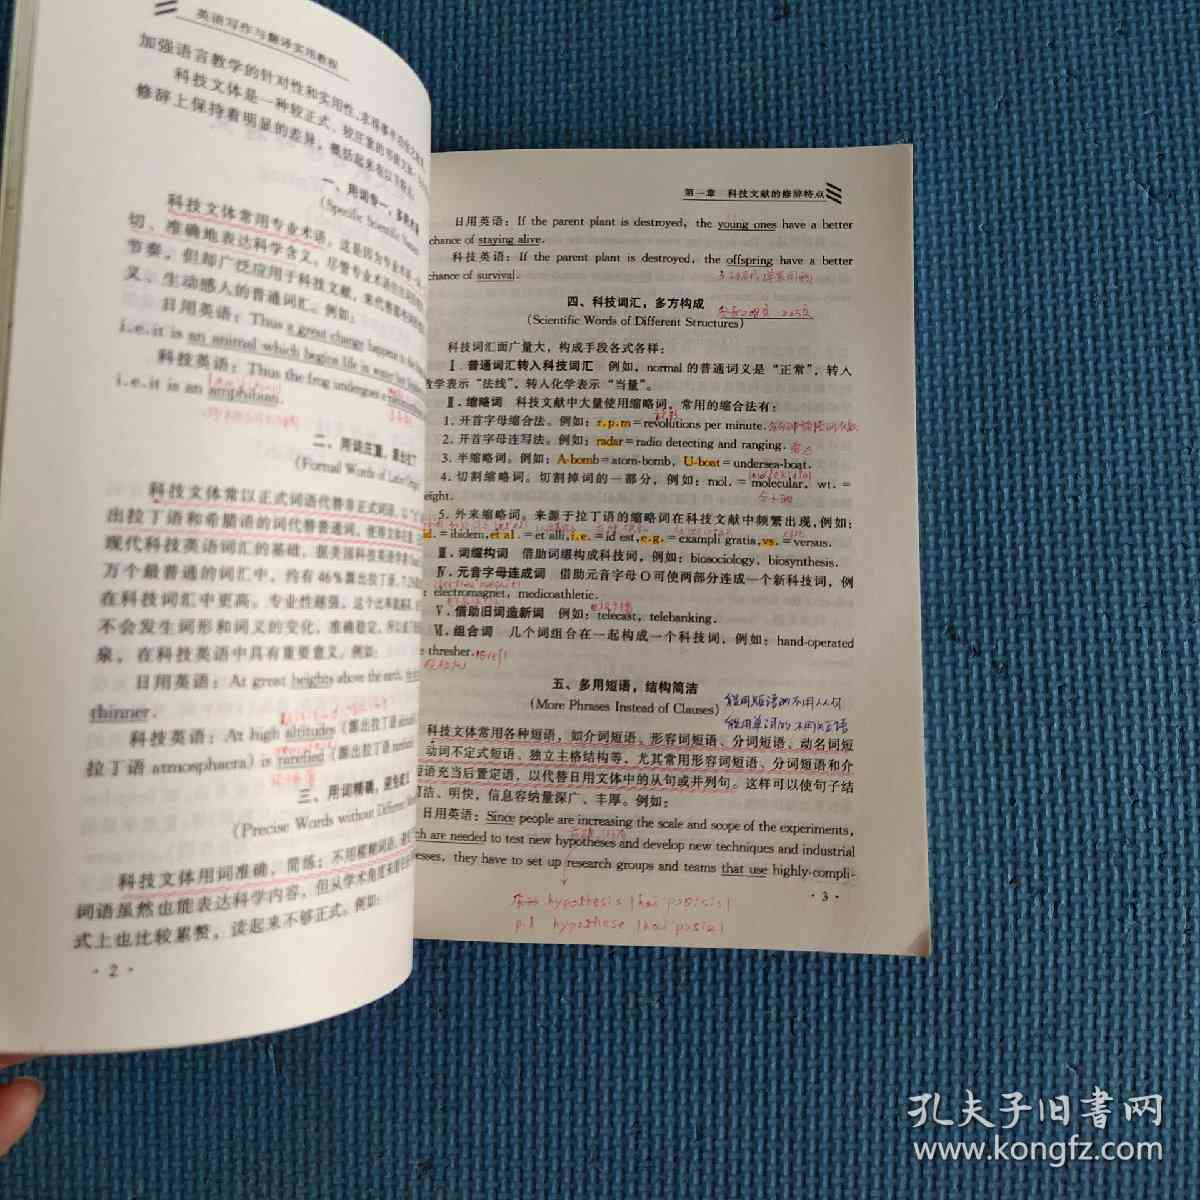 英语写作与翻译实用教程
加强语言教学的针对性和实用性,
科技文体是一种较正式、较庄重的
修辞上保持着明显的差异,概括起来
一、用词专一,多
(Specific Scientific
科技文体常用专业术语,这是因为专业术语
切、准确地表达科学含义。尽管专业术语
节奏,但却广泛应用于科技文献,来代替
义、生动感人的普通词汇。例如:
日用英语:Thus a great change happens
i.e.it is an animal which begins life in water
科技英语:Thus the frog undergoes a
i.e.it is an amphibian.
二、用词庄重,
(Formal Words of Latin
科技文体常以正式词语代替非正式词语,以
出拉丁语和希腊语的词代替普通词,使得文体
现代科技英语词汇的基础,据美国科技英语学者
万个最普通的词汇中,约有46%源出拉丁语,
在科技词汇中更高。专业性越强,这个比率就越高,
不会发生词形和词义的变化,准确稳定,所以成了
泉,在科技英语中具有重要意义。例如:
日用英语:At great heights above the earth,
thinner.
科技英语:At high altitudes (源出拉丁语
拉丁语 atmosphaera) is rarefied (源出拉丁语
三、用词精确,
(Precise Words without Different
科技文体用词准确,简练;不用模糊词语,
词语虽然也能表达科学内容,但从学术角度来看
式上也比较累赘,读起来不够正式。例如:
· 2 ·
第一章 科技文献的修辞特点
日用英语:If the parent plant is destroyed, the young ones have a better
chance of staying alive.
科技英语:If the parent plant is destroyed, the offspring have a better
chance of survival.
四、科技词汇,多方构成
(Scientific Words of Different Structures)
科技词汇面广量大,构成手段各式各样:
Ⅰ.普通词汇转入科技词汇 例如,normal 的普通词义是“正常”,转入
数学表示“法线”,转入化学表示“当量”。
Ⅱ.缩略词 科技文献中大量使用缩略词,常用的缩合法有:
1.开首字母缩合法。例如:r.p.m=revolutions per minute.
2.开首字母连写法。例如:radar=radio detecting and ranging.
3.半缩略词。例如:A-bomb=atom-bomb, U-boat=undersea-boat.
4.切割缩略词。切割掉词的一部分,例如:mol.=molecular, wt.=
eight.
5.外来缩略词。来源于拉丁语的缩略词在科技文献中频繁出现,例如:
id.=ibidem,et al.=et alli,i.e.=id est,e.g.=exampli gratia,vs.=versus.
Ⅲ.词缀构词 借助词缀构成科技词,例如:biosociology, biosynthesis.
Ⅳ.元音字母连成词 借助元音字母O可使两部分连成一个新科技词,例
: electromagnet, medicoathletic.
Ⅴ.借助旧词造新词 例如:telecast, telebanking.
Ⅵ.组合词 几个词组合在一起构成一个科技词,例如:hand-operated
thresher.
五、多用短语,结构简洁
(More Phrases Instead of Clauses)
能用短语的不用从句
能用单词的不用短语
科技文体常用各种短语,如介词短语、形容词短语、分词短语、动名词短
动词不定式短语、独立主格结构等,尤其常用形容词短语、分词短语和介
短语充当后置定语,以代替日用文体中的从句或并列句。这样可以使句子结
简洁、明快,信息容纳量深广、丰厚。例如:
日用英语:Since people are increasing the scale and scope of the experiments,
ch are needed to test new hypotheses and develop new techniques and industrial
esses, they have to set up research groups and teams that use highly-compli-
· 3 ·
hypothesis
p.l hypothese
孔夫子旧書网
www.kongfz.com